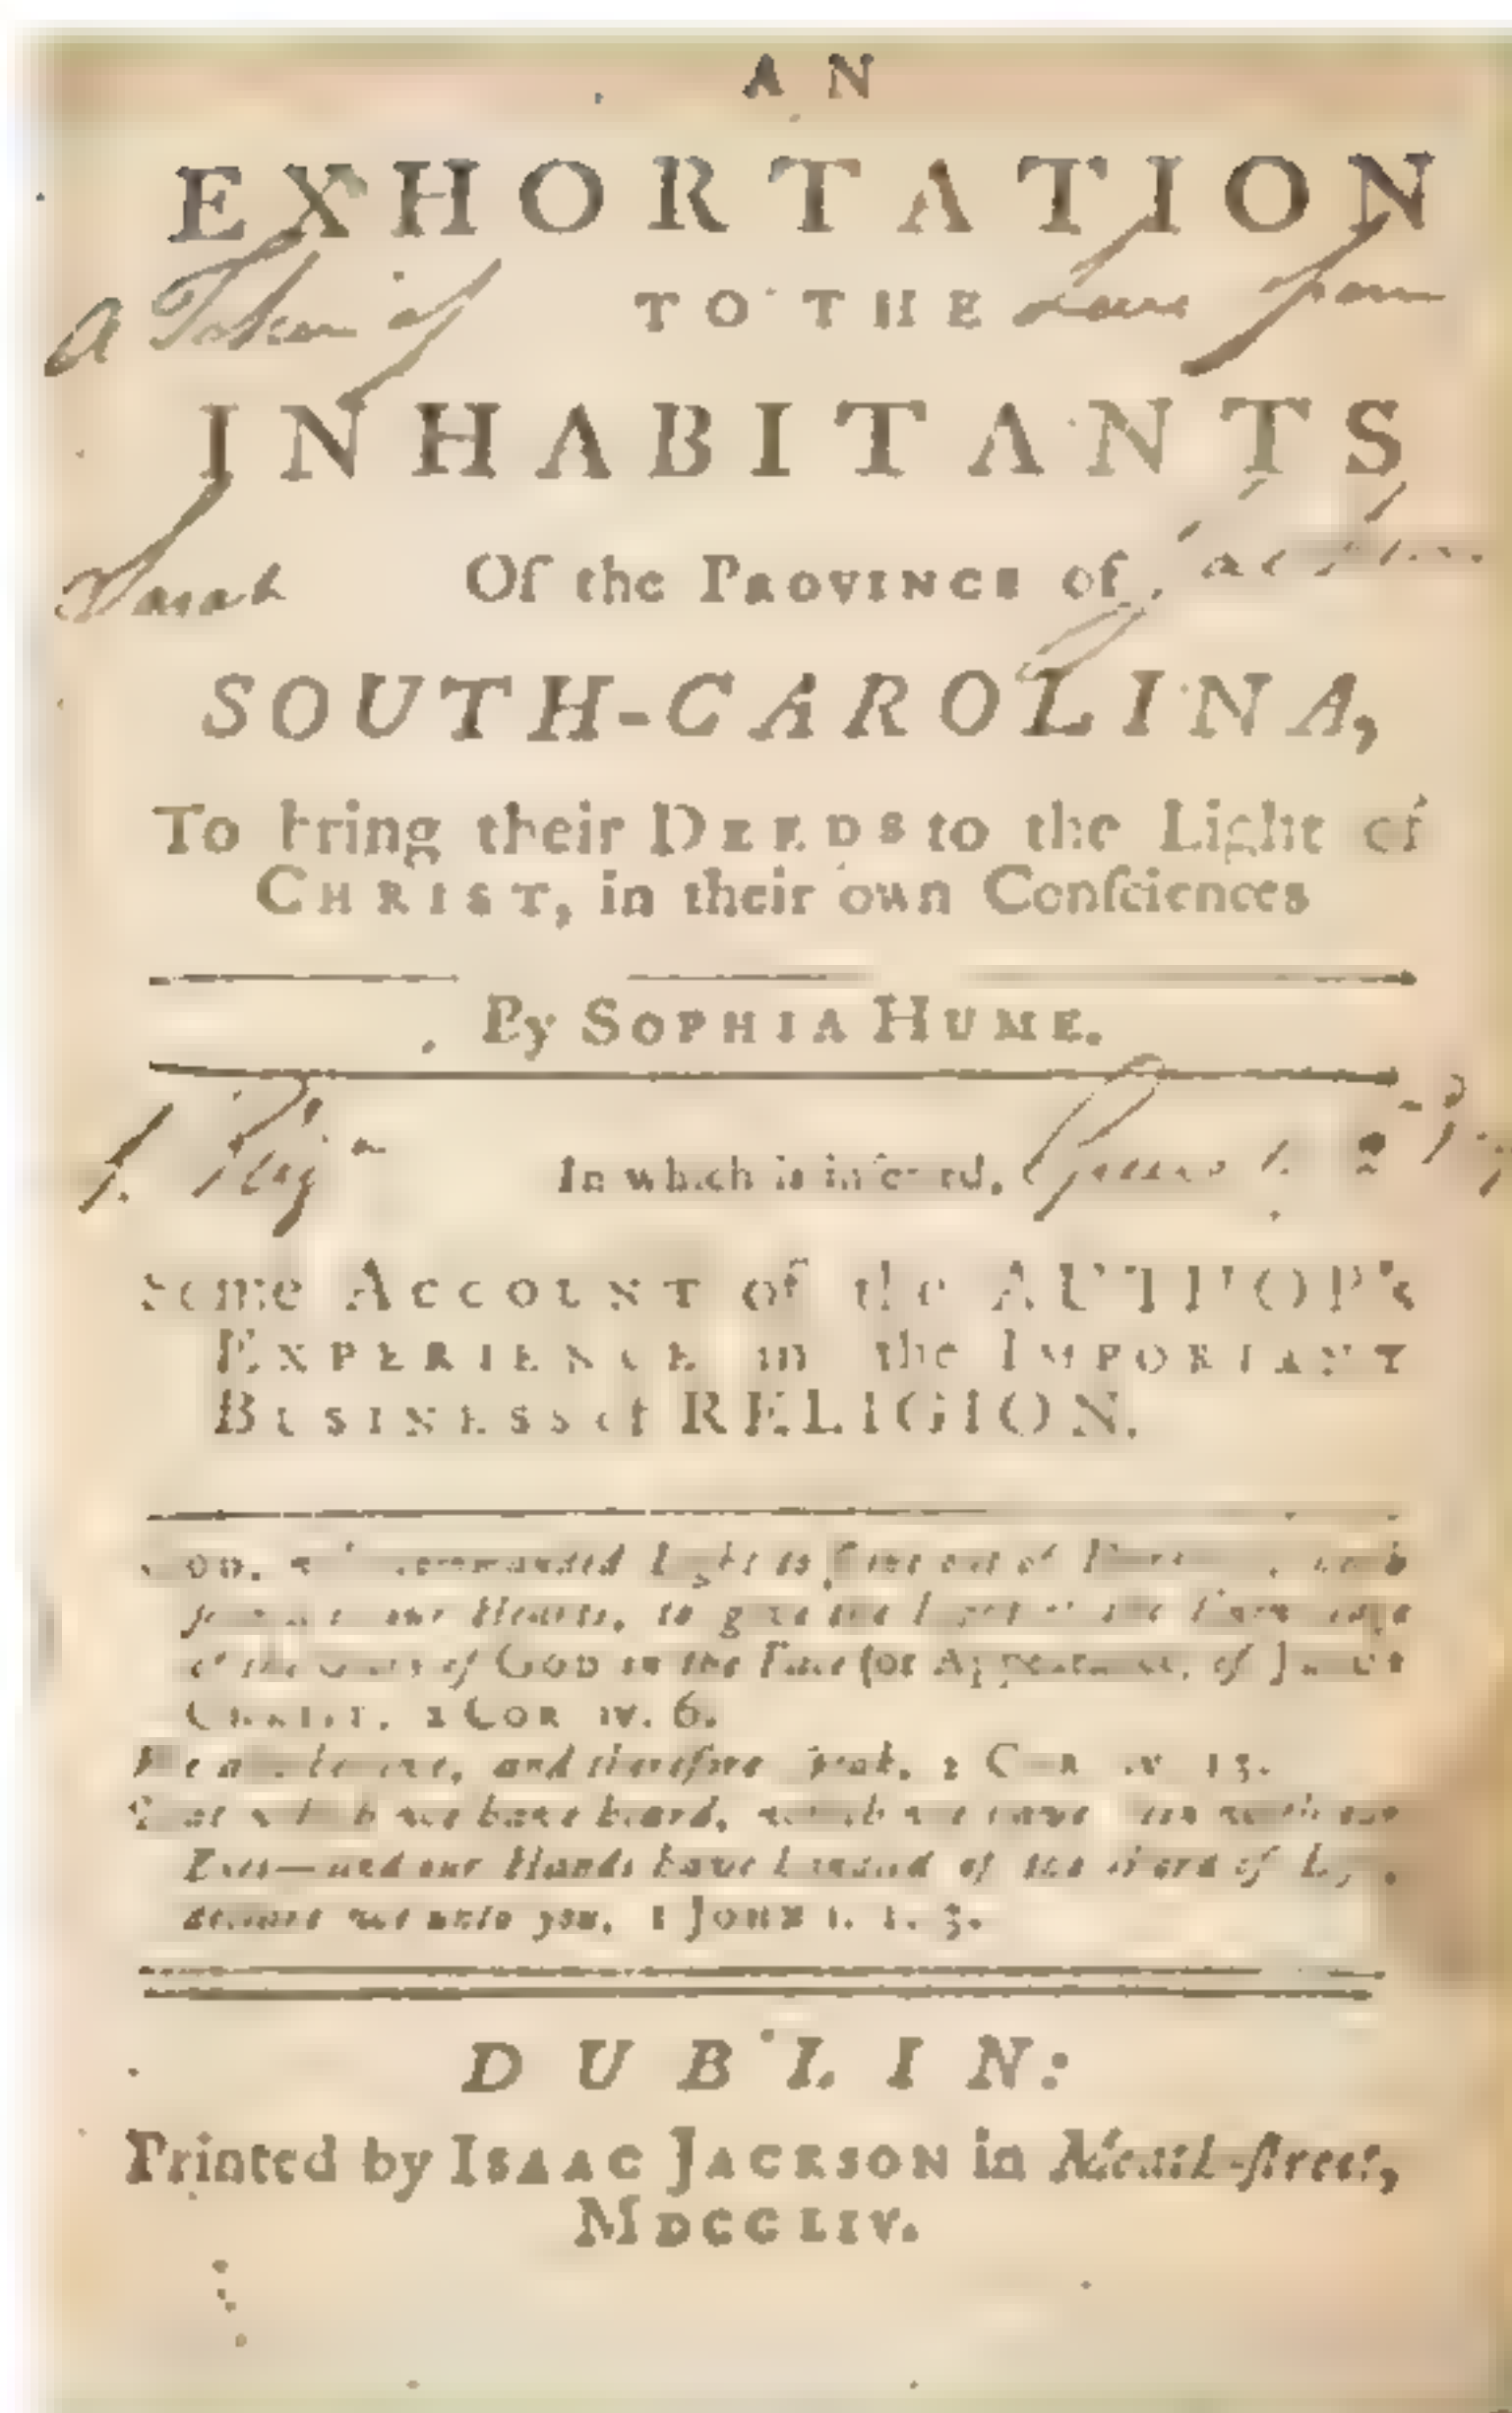 AN
EXHORTATION
A Token of TO THE Love from
INHABITANTS
Sarah Of the PROVINCE of
SOUTH-CAROLINA,
To bring their DEEDS to the Light of
CHRIST, in their own Conſciences
By SOPHIA HUME.
In which is inſerted,
Some ACCOUNT of the AUTHOR's
EXPERIENCE in the IMPORTANT
BUSINESS of RELIGION.
commanded Light to ſhine out of
our Hearts, to give the Light of the
of GOD in the Face (or Appearance) of JESUS
CHRIST. 2 COR iv. 6.
and therefore ſpeak. 2 COR iv 13.
we have heard, which we have ſeen with our
Eyes—and our Hands have handled of the Word of
declare we unto you. 1 JOHN i. 1. 3.
DUBLIN:
Printed by ISAAC JACKSON in Meath-ſtreet,
MDCCLIV.